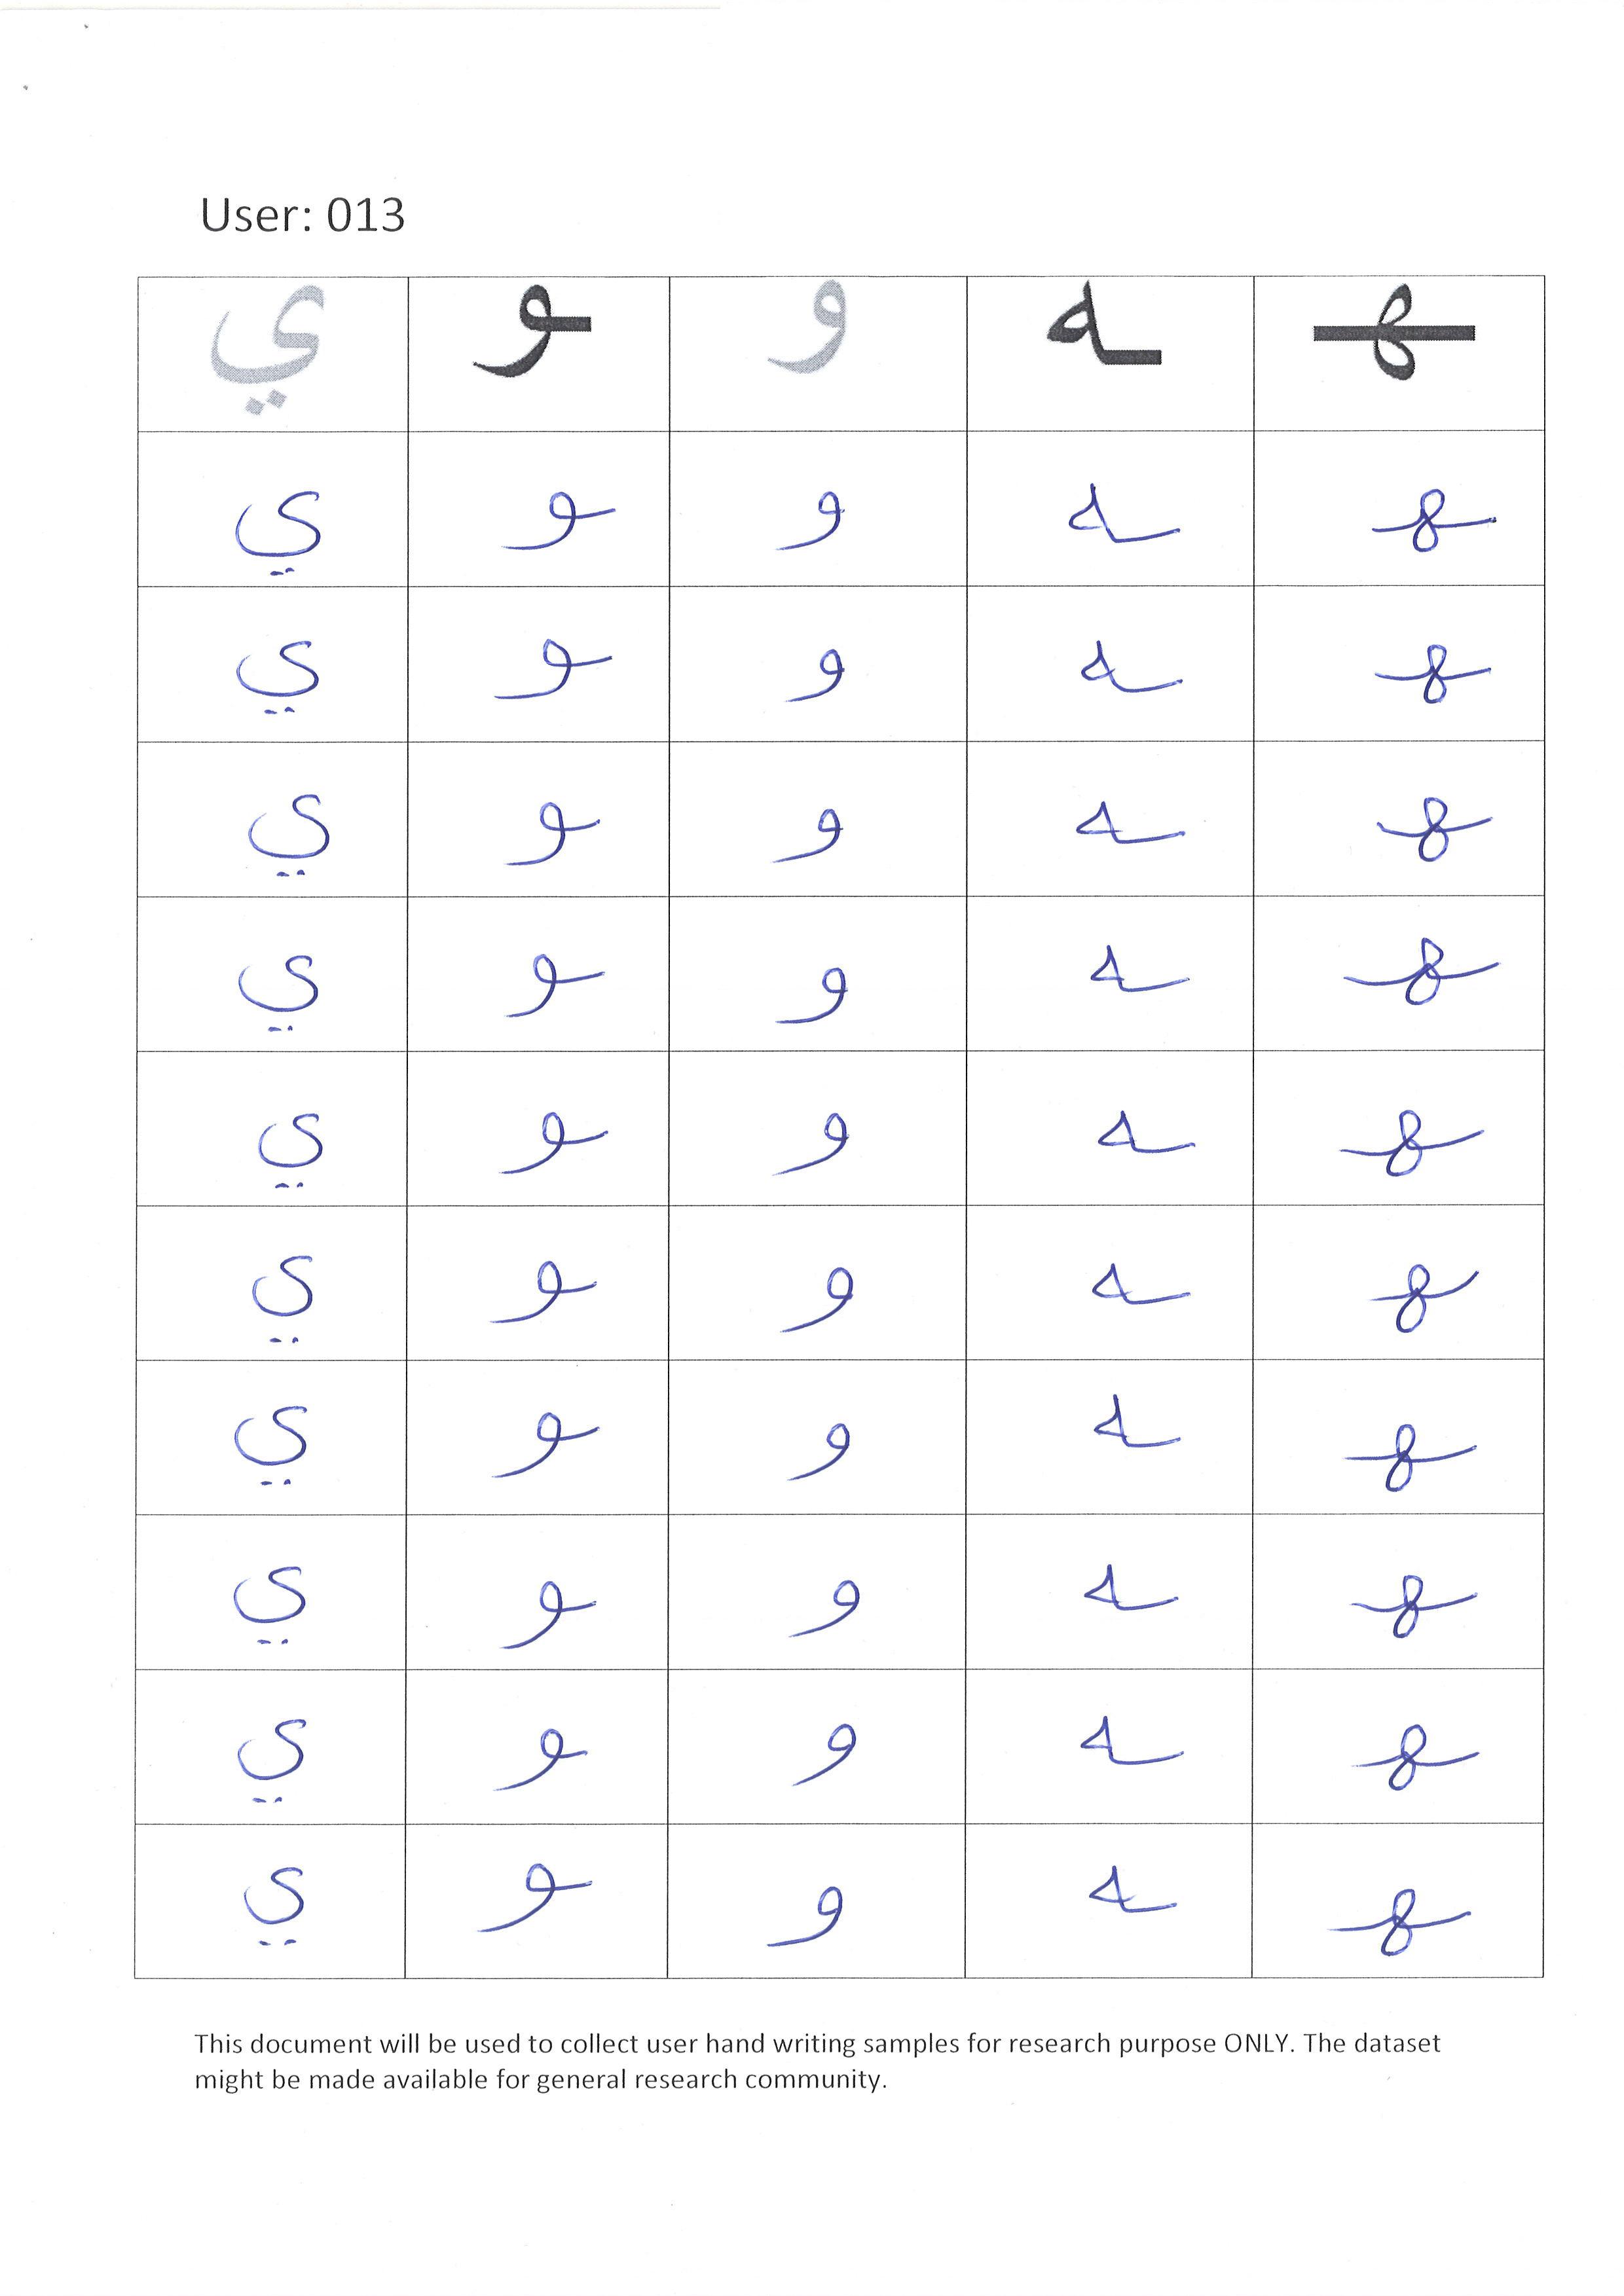 User: 013
ي ـو و ـه ـهـ
ي ـو و ـه ـهـ
ي ـو و ـه ـهـ
ي ـو و ـه ـهـ
ي ـو و ـه ـهـ
ي ـو و ـه ـهـ
ي ـو و ـه ـهـ
ي ـو و ـه ـهـ
ي ـو و ـه ـهـ
ي ـو و ـه ـهـ
ي ـو و ـه ـهـ
This document will be used to collect user hand writing samples for research purpose ONLY. The dataset
might be made available for general research community.